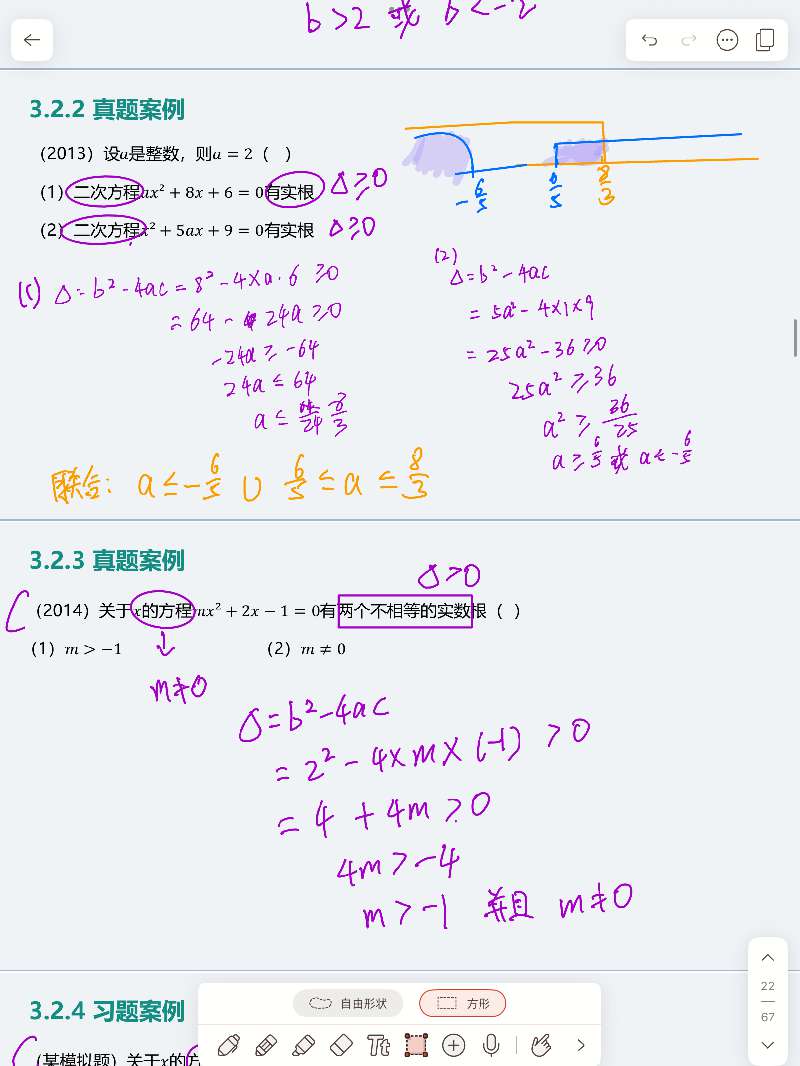 b>2 或 b<-2
3.2.2 真题案例
（2013）设a是整数，则a = 2（ ）
（1）二次方程ax² + 8x + 6 = 0有实根 Δ≥0
（2）二次方程x² + 5ax + 9 = 0有实根 Δ≥0
-6/5 6/5 8/3
(1) Δ=b²-4ac=8²-4×a·6≥0
=64-24a≥0
-24a≥-64
24a≤64
a≤64/24 8/3
(2)
Δ=b²-4ac
=5a²-4×1×9
=25a²-36≥0
25a²≥36
a²≥36/25
a≥6/5或a≤-6/5
联合: a≤-6/5 ∪ 6/5≤a≤8/3
3.2.3 真题案例
Δ>0
（2014）关于x的方程mx² + 2x − 1 = 0有两个不相等的实数根（ ）
（1）m > −1 （2）m ≠ 0
m≠0
Δ=b²-4ac
=2²-4×m×(-1)>0
=4+4m>0
4m>-4
m>-1 并且 m≠0
3.2.4 习题案例
（某模拟题）关于x的方
自由形状 方形
Tt
22
67